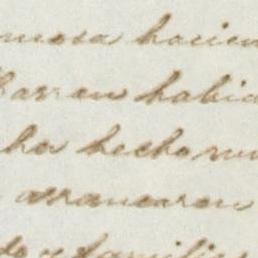 mosa hacien
Carran habia
ha hecho mu
arrancaron
do y familia